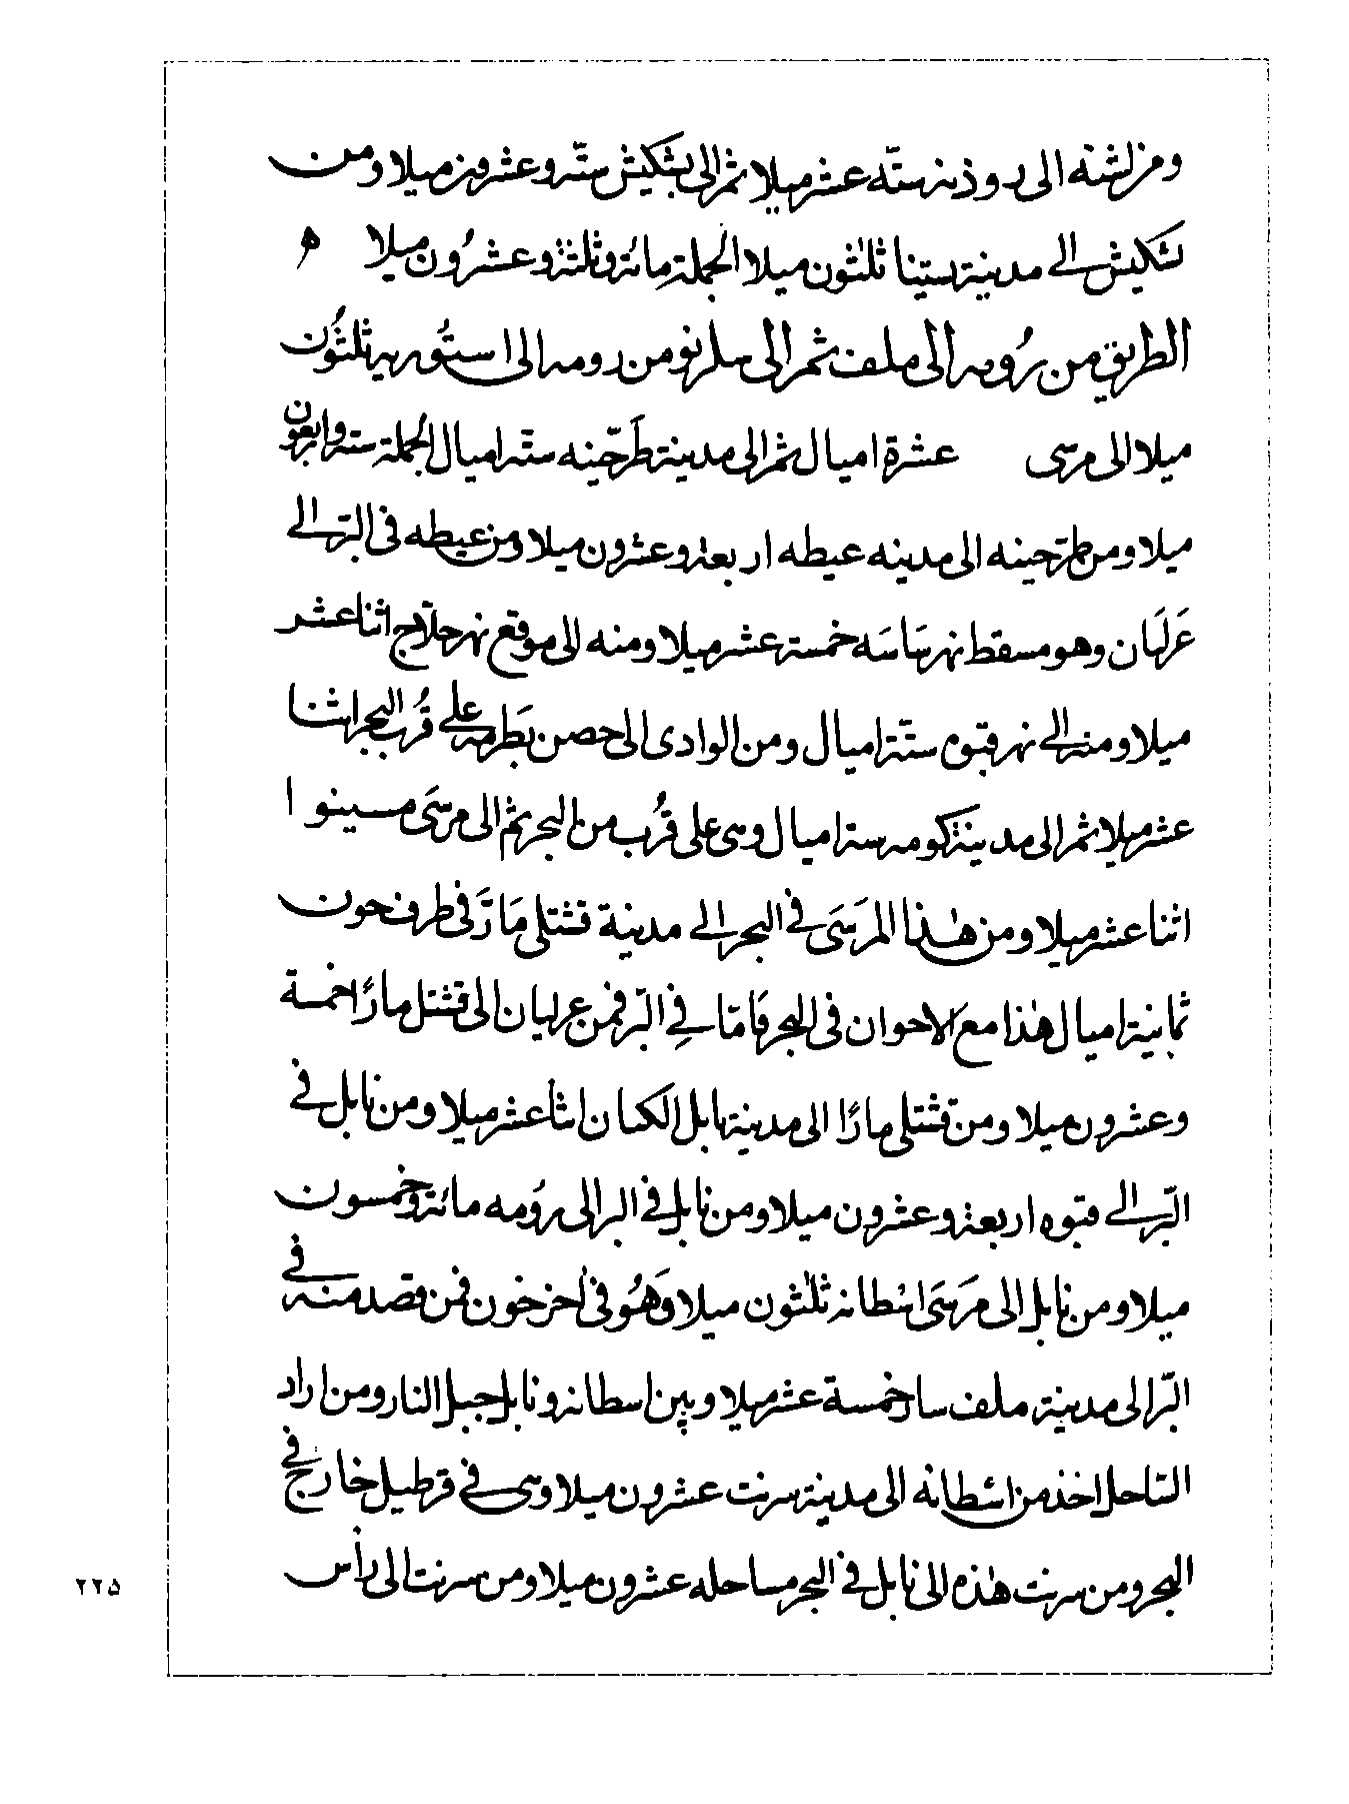 ومن لشنه الى روذنه ستّه عشر ميلا ثم الى بشكيش ستّه وعشرون ميلا ومن
بشكيش الى مدينة ستينا ثلثون ميلا الجملة مائة وثلثة وعشرُون ميلا ه
الطريق من رُومه الى ملف ثم الى سلرنو من رومه الى استُوريه ثلثُون
ميلا الى مرسى عشرة اميال ثم الى مدينة طَرحّينه ستّه اميال الجملة ستة واربعون
ميلا ومن طرحينه الى مدينه غيطه اربعة وعشرون ميلا ومن غيطه فى البرّ الى
غَرلَيَان وهو مسقط نهر سَاسَه خمسة عشر ميلا ومنه الى موقع نهر حلاّج اثنا عشر
ميلا ومنه الى نهر قبوه ستّة اميال ومن الوادى الى حصن بَطرمه على قُرب البحر اثنا
عشر ميلا ثم الى مدينة كومه ستة اميال وهى على قُرب من البحر ثم الى مرسَى مسينو ا
اثنا عشر ميلا ومن هٰذا المرسَى فى البحر الى مدينة قشتلى مَارَّ فى طرف جون
ثمانية اميال هٰذا مع الاحوان فى البحر فَامّا فِى البرّ فمن غرليان الى قشتل مارًا خمسة
وعشرون ميلا ومن قشتلى مارًا الى مدينة نابل الكتان اثنا عشر ميلا ومن نابل فى
البّر الى قبوه اربعة وعشرون ميلا ومن نابل فى البر الى رُومه مائة وخمسون
ميلا ومن نابل الى مَرسَى اسطانه ثلٰثون ميلا وَهُو فى اٰخر خون فمن قصد منه فى
البّر الى مدينة ملف سار خمسة عشر ميلا وبين اسطانه ونابل جبل النار ومن اراد
السّاحل اخذ من اسطانه الى مدينة سرنت عشرون ميلا وهى فى قرطيل خارج فى
البحر ومن سرنت هٰذه الى نابل فى البحر مساحله عشرون ميلا ومن سرنت الى رأس
٢٢٥